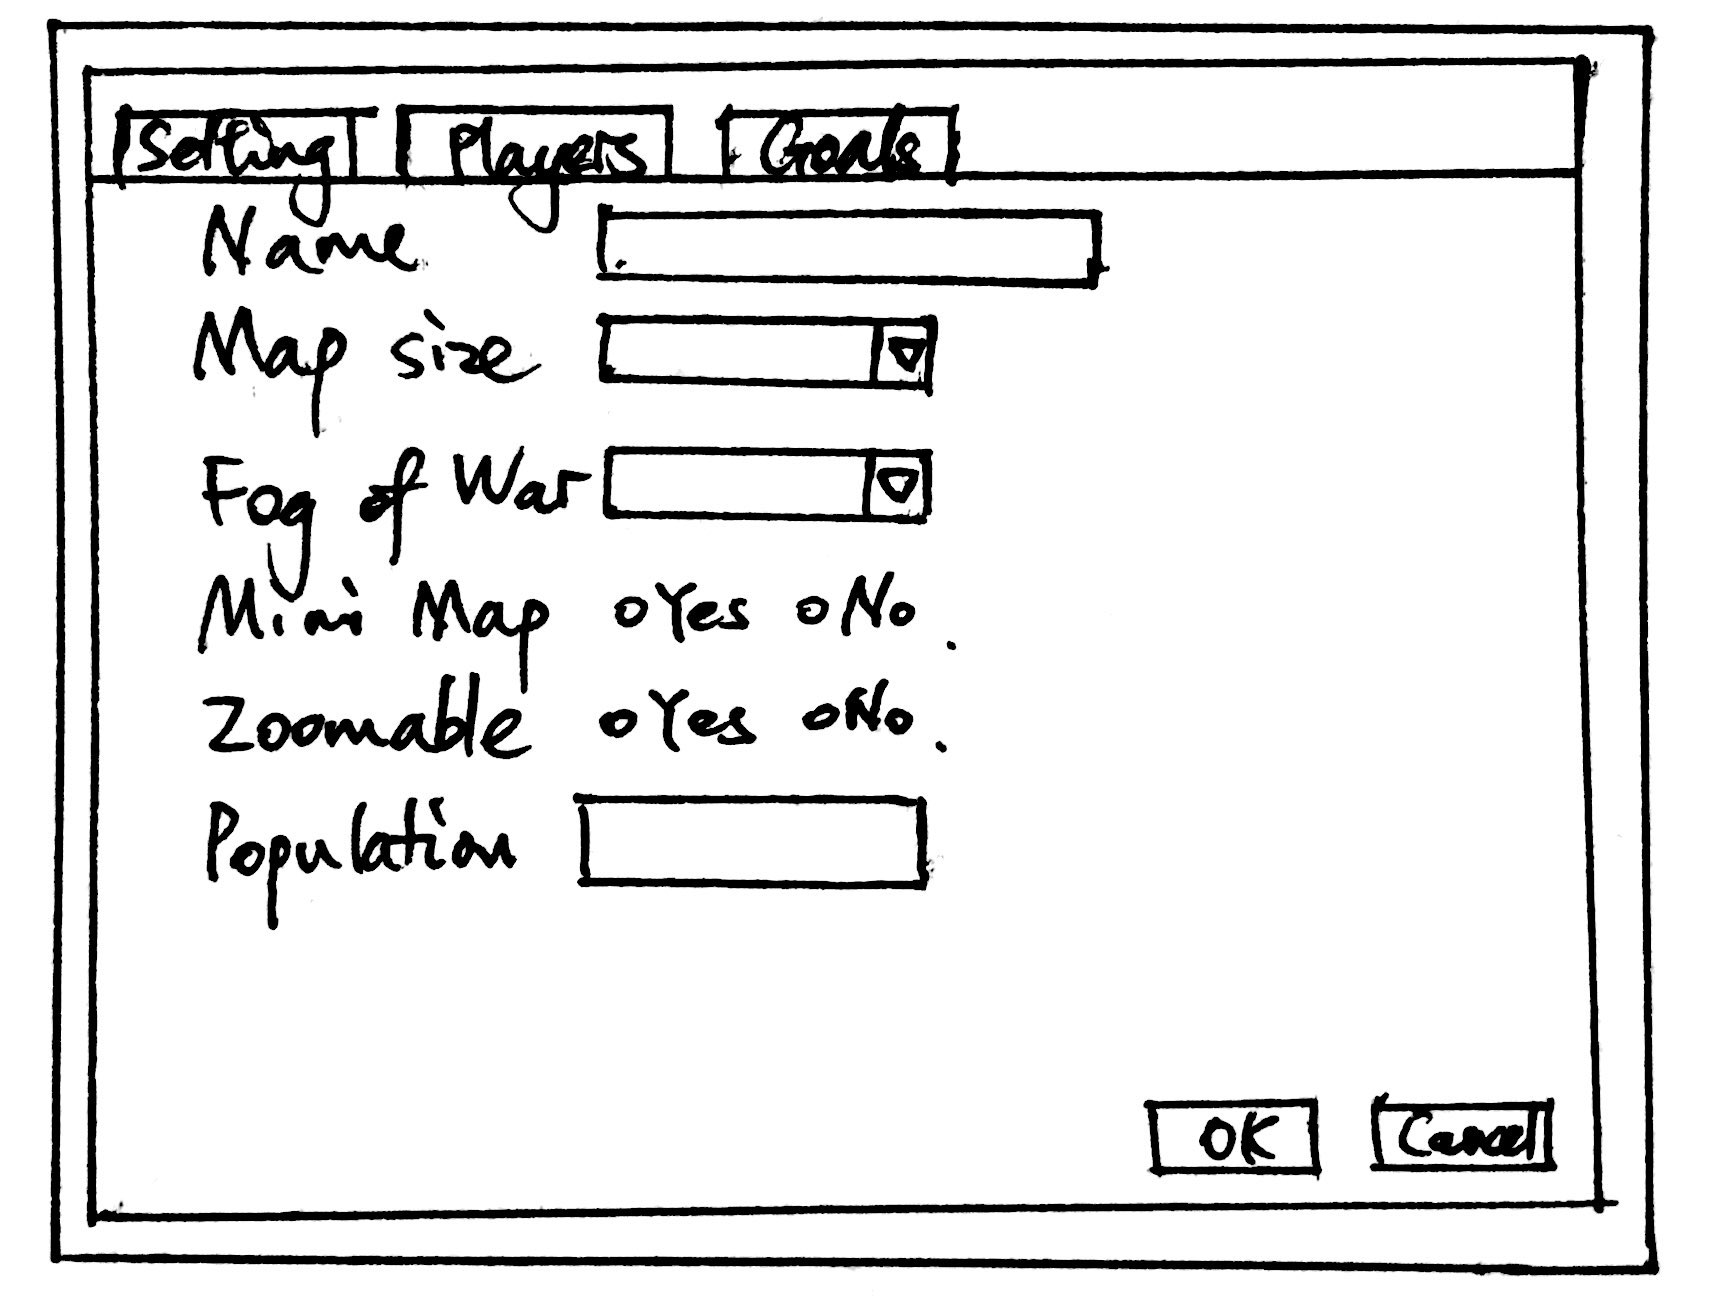 Setting Players Goals
Name
Map size
Fog of War
Mini Map Yes No
Zoomable Yes No
Population
OK Cancel